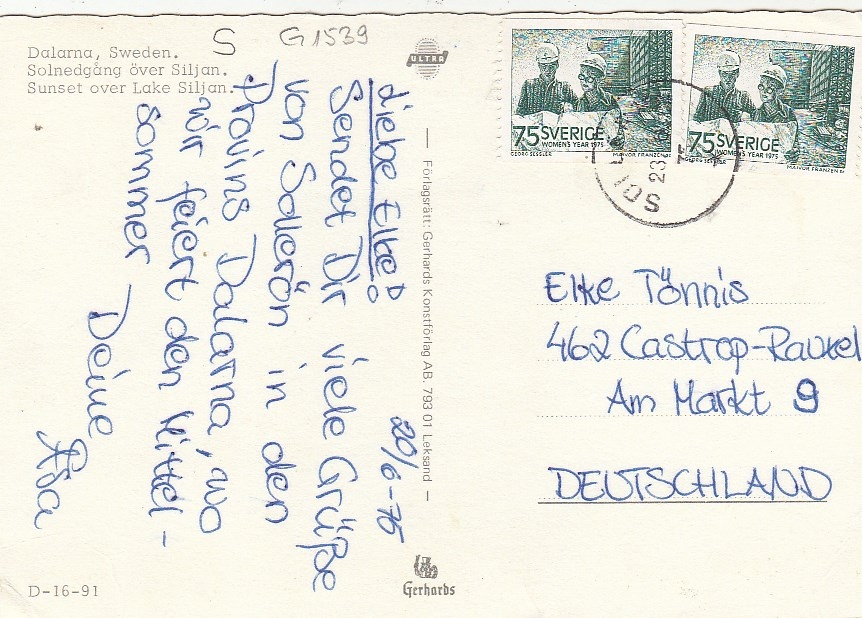 Dalarna, Sweden.
Solnedgång över Siljan.
Sunset over Lake Siljan.
S
G1539
ULTRA
Liebe Elke!
20/6-75
Sendet Dir viele Grüße
von Sollerön in den
Provins Dalarna, wo
wir feiert den Mittel-
sommer
Deine
Åsa
Förlagsrätt: Gerhards Konstförlag AB, 793 01 Leksand
Gerhards
D-16-91
75 SVERIGE
WOMEN'S YEAR 1975
GEORG SESSLER
MOIVOR FRANZEN SC
75 SVERIGE
WOMEN'S YEAR 1975
GEORG SESSLER
MOIVOR FRANZEN SC
23
75
Elke Tönnis
462 Castrop-Rauxel
Am Markt 9
DEUTSCHLAND